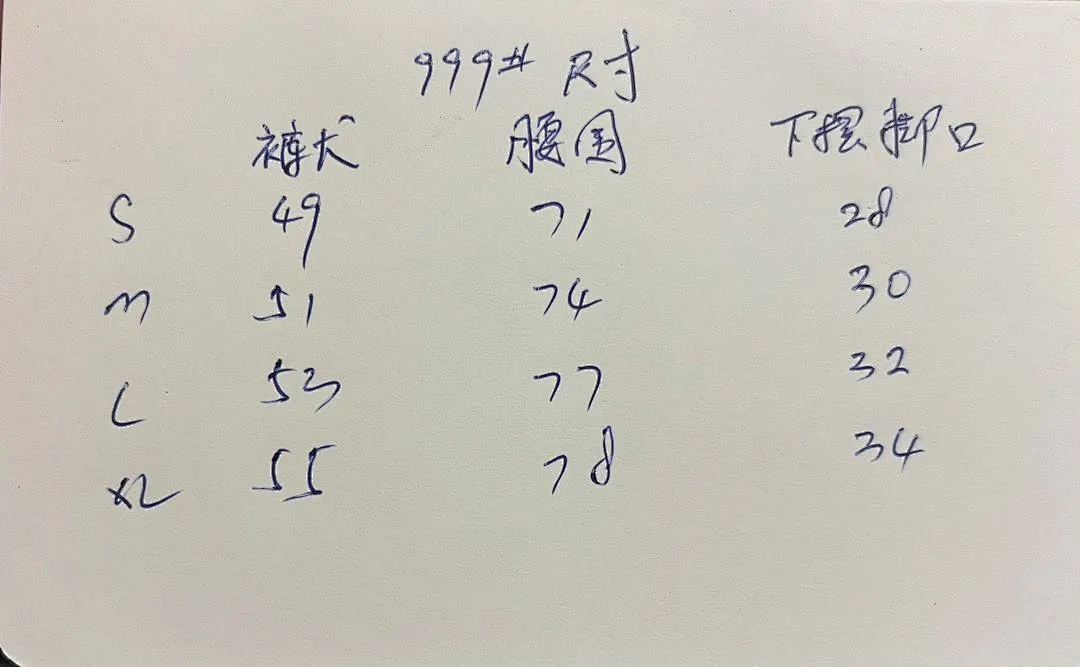 999# 尺寸
裤长 腰围 下摆脚口
S 49 71 28
M 51 74 30
L 53 77 32
XL 55 78 34